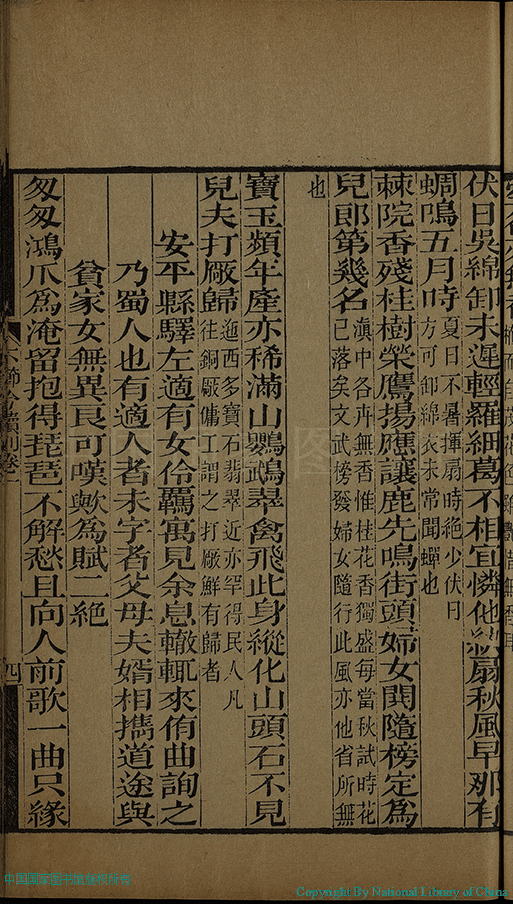 伏日吳綿卸未遲輕羅細葛不相宜憐他紈扇秋風早那有
蜩鳴五月時夏日不暑揮扇時絶少伏日
方可卸綿衣未常聞蟬也
棘院香殘桂樹榮鷹揚應讓鹿先鳴街頭婦女鬨隨榜定爲
兒郎第幾名滇中各卉無香惟桂花香獨盛每當秋試時花
已落矣文武榜發婦女隨行此風亦他省所無
也
寶玉頻年產亦稀滿山鸚鵡翠禽飛此身縱化山頭石不見
兒夫打厰歸迤西多寶石翡翠近亦罕得民人凡
往銅厰傭工謂之打厰鮮有歸者
安平縣驛左適有女伶羈寓見余息轍輒來侑曲詢之
乃蜀人也有適人者未字者父母夫婿相攜道途與
貧家女無異良可嘆歟爲賦二絶
匆匆鴻爪爲淹留抱得琵琶不解愁且向人前歌一曲只緣
四
中国国家图书馆
Copyright By National Library of China